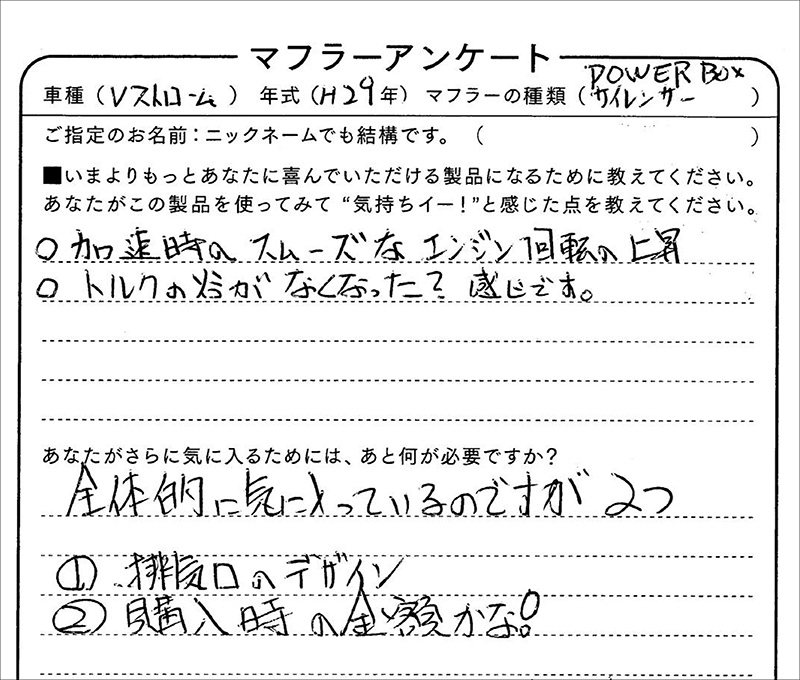 マフラーアンケート
車種（Vストローム）　年式（H29年）　マフラーの種類（POWER BOX サイレンサー）
ご指定のお名前：ニックネームでも結構です。（　　　）
■いまよりもっとあなたに喜んでいただける製品になるために教えてください。
あなたがこの製品を使ってみて“気持ちイー！”と感じた点を教えてください。
○ 加速時のスムーズなエンジン回転の上昇
○ トルクの谷がなくなった？感じです。
あなたがさらに気に入るためには、あと何が必要ですか？
全体的に気に入っているのですが 2つ
① 排気口のデザイン
② 購入時の金額かな!